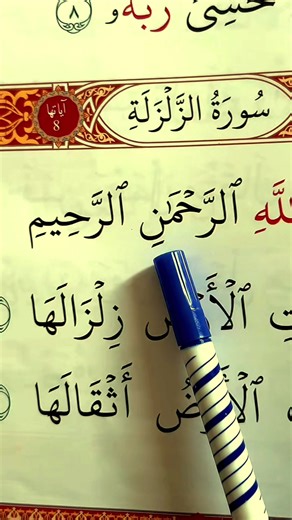 خَشِيَ رَبَّهُۥ ٨
سُورَةُ الزَّلْزَلَةِ
آيَاتُهَا
8
ٱللَّهِ ٱلرَّحْمَٰنِ ٱلرَّحِيمِ
ٱلْأَرْضُ زِلْزَالَهَا
ٱلْأَرْضُ أَثْقَالَهَا